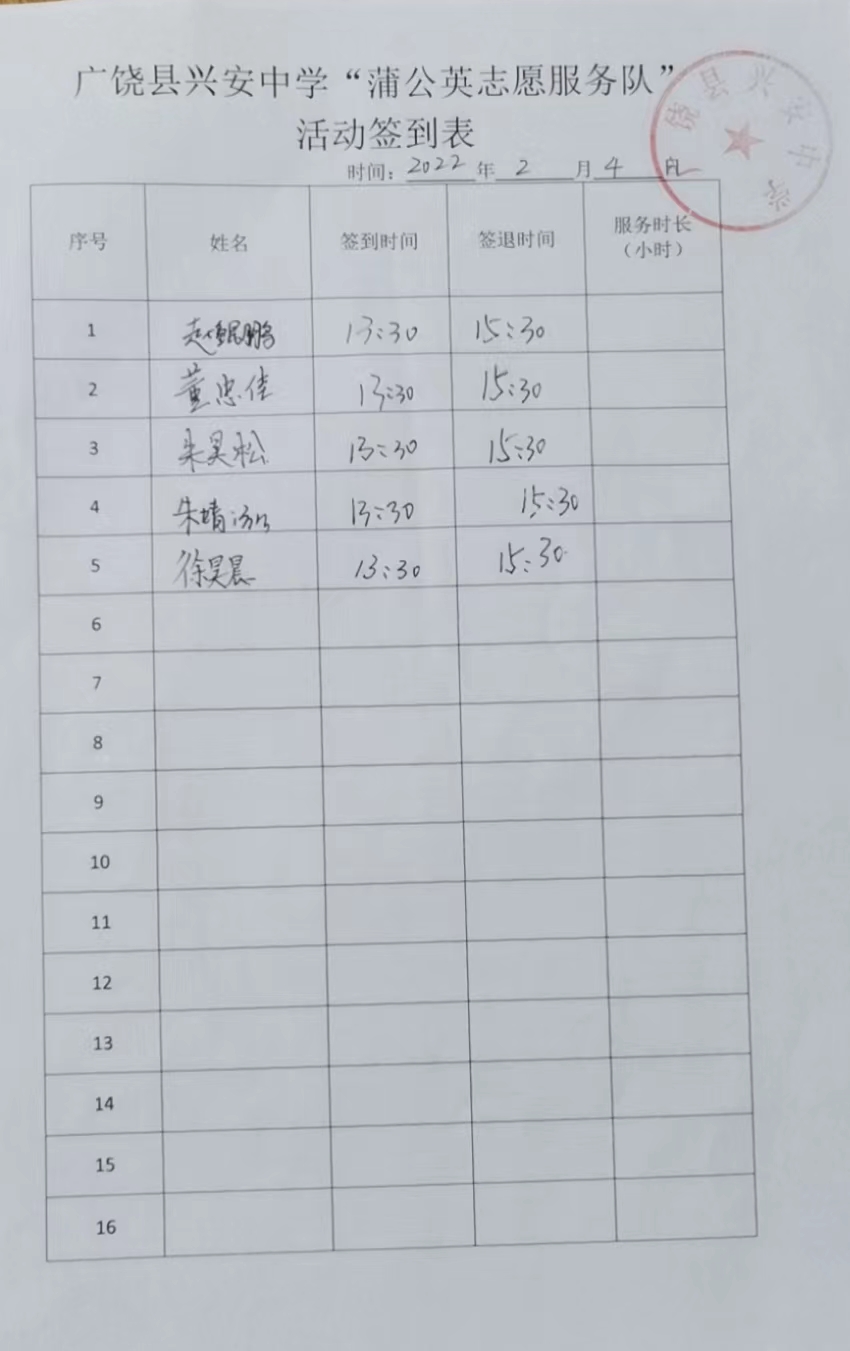 广饶县兴安中学“蒲公英志愿服务队”
活动签到表
时间：2022年 2 月 4 日
广饶县兴安中学
序号 姓名 签到时间 签退时间 服务时长（小时）
1 赵鲲鹏 13:30 15:30
2 董忠佳 13:30 15:30
3 朱昊松 13:30 15:30
4 朱靖 13:30 15:30
5 徐昊晨 13:30 15:30
6
7
8
9
10
11
12
13
14
15
16